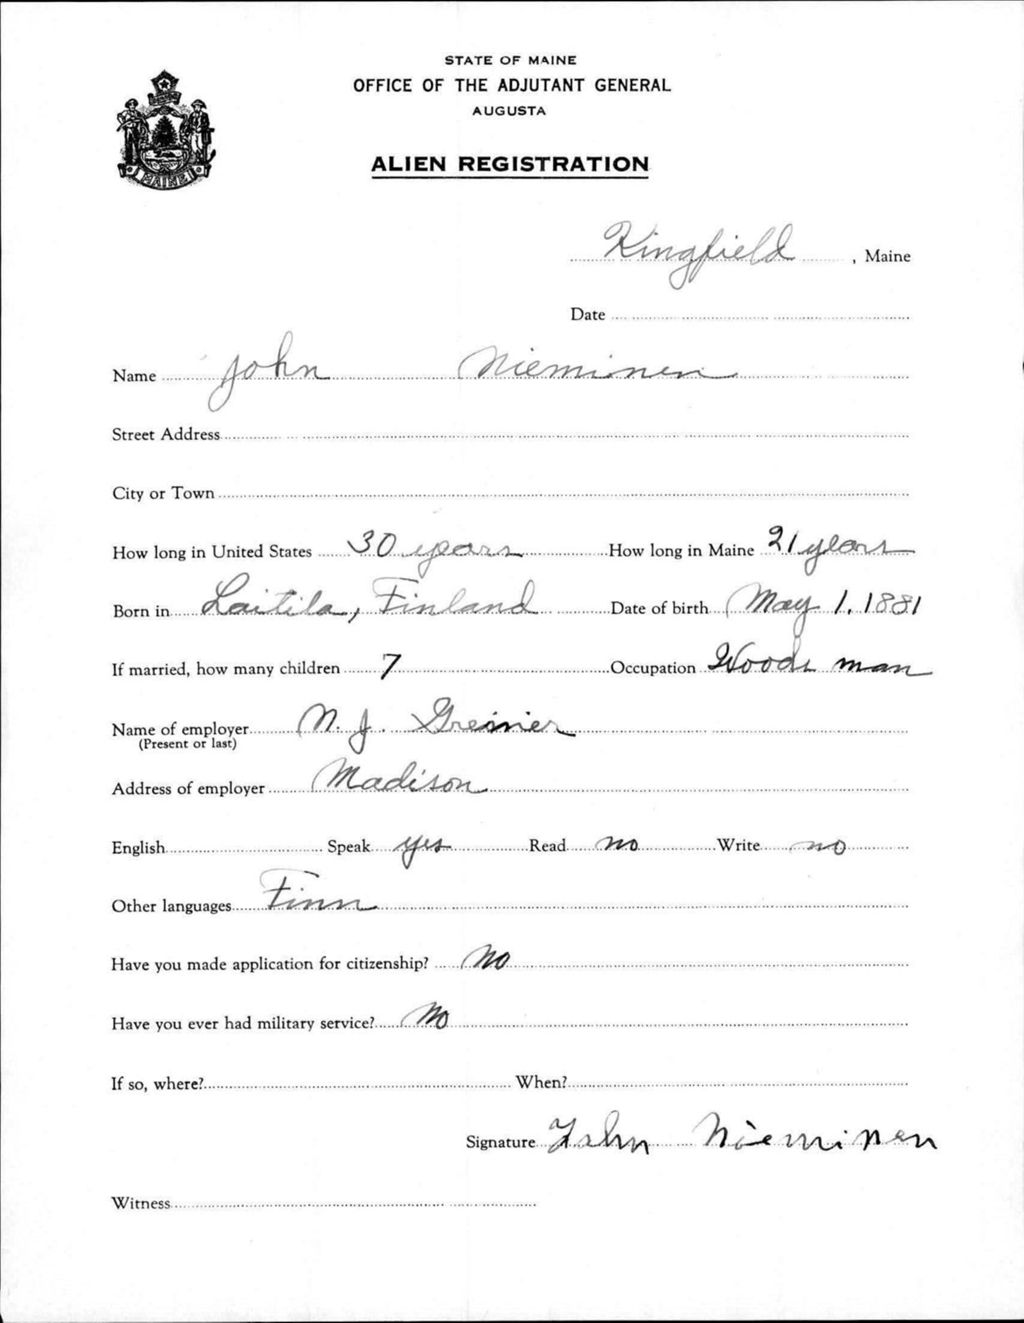 STATE OF MAINE
OFFICE OF THE ADJUTANT GENERAL
AUGUSTA
ALIEN REGISTRATION
MAINE
Kingfield, Maine
Date
Name John Nieminen
Street Address
City or Town
How long in United States 30 years How long in Maine 21 years
Born in Laitila, Finland Date of birth May 1, 1881
If married, how many children 7 Occupation Woods man
Name of employer N. J. Greinier
(Present or last)
Address of employer Madison
English Speak yes Read no Write no
Other languages Finn
Have you made application for citizenship? No
Have you ever had military service? No
If so, where? When?
Signature John Nieminen
Witness